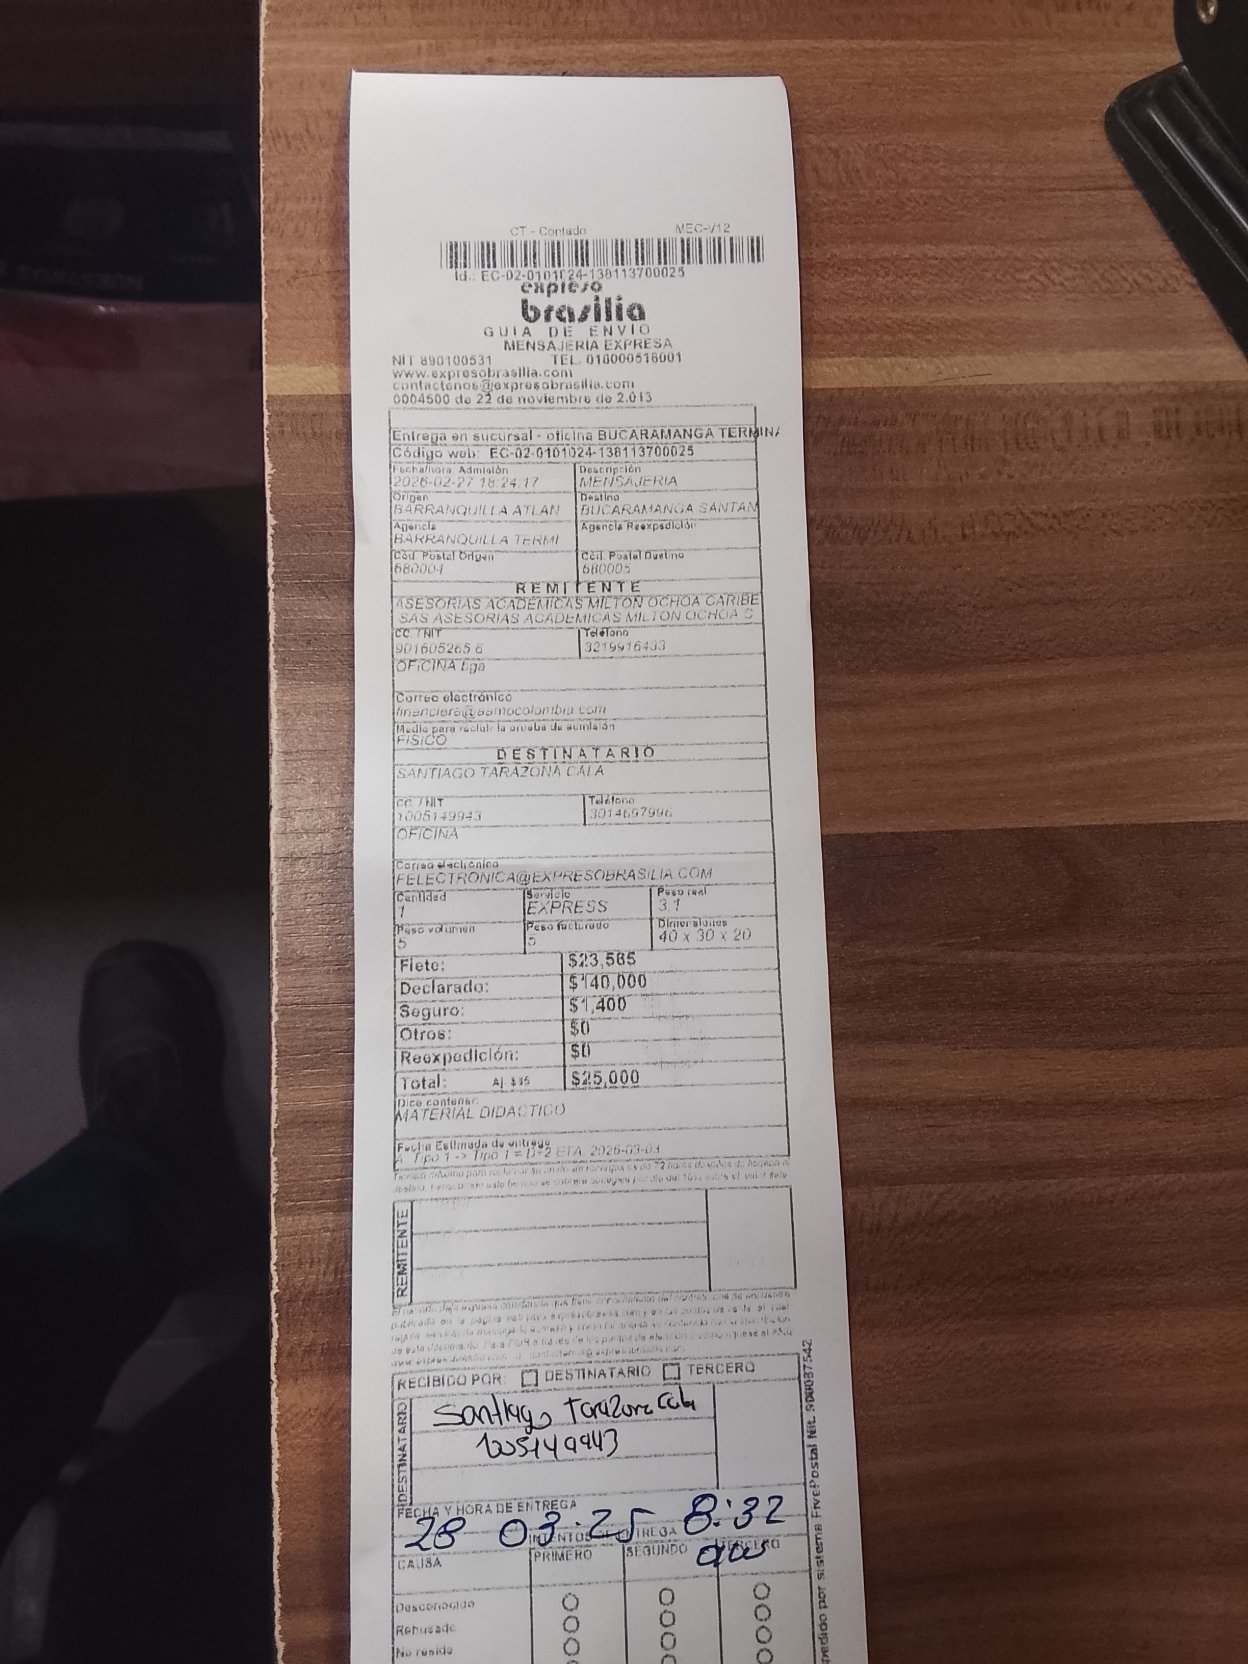 CT - Contado MEC-V12
Id.: EC-02-0101024-138113700025
expreso
brasilia
GUIA DE ENVIO
MENSAJERIA EXPRESA
NIT 890100531 TEL. 018000518001
www.expresobrasilia.com
contactenos@expresobrasilia.com
0004500 de 22 de noviembre de 2.013
Entrega en sucursal - oficina BUCARAMANGA TERMINA
Código web: EC-02-0101024-138113700025
Fecha/hora Admisión Descripción
2026-02-27 18:24:17 MENSAJERIA
Origen Destino
BARRANQUILLA ATLAN BUCARAMANGA SANTAN
Agencia Agencia Reexpedición
BARRANQUILLA TERMI
Cód. Postal Origen Cód. Postal Destino
680004 680005
REMITENTE
ASESORIAS ACADEMICAS MILTON OCHOA CARIBE
SAS ASESORIAS ACADEMICAS MILTON OCHOA C
CC. / NIT Teléfono
901605265 6 3219916433
OFICINA bga
Correo electrónico
financiera@aamocolombia.com
Medio para recibir la prueba de admisión
FISICO
DESTINATARIO
SANTIAGO TARAZONA CALA
CC. / NIT Teléfono
1005149943 3014697996
OFICINA
Correo electrónico
FELECTRONICA@EXPRESOBRASILIA.COM
Cantidad Servicio Peso real
1 EXPRESS 3.1
Peso volumen Peso facturado Dimensiones
5 5 40 x 30 x 20
Flete: $23,565
Declarado: $140,000
Seguro: $1,400
Otros: $0
Reexpedición: $0
Total: Aj $35 $25,000
Dice contener:
MATERIAL DIDACTICO
Fecha Estimada de entrega
A Tipo 1 -> Tipo 1 = D+2 ETA: 2026-03-03
REMITENTE
RECIBIDO POR: DESTINATARIO TERCERO
DESTINATARIO
Santiago Tarazona Cala
1005149943
FECHA Y HORA DE ENTREGA
28 03.25 8:32
am
INTENTOS DE ENTREGA
CAUSA PRIMERO SEGUNDO TERCERO
Desconocido
Rehusado
No reside
pedido por sistema FivePostal Nit. 900087542